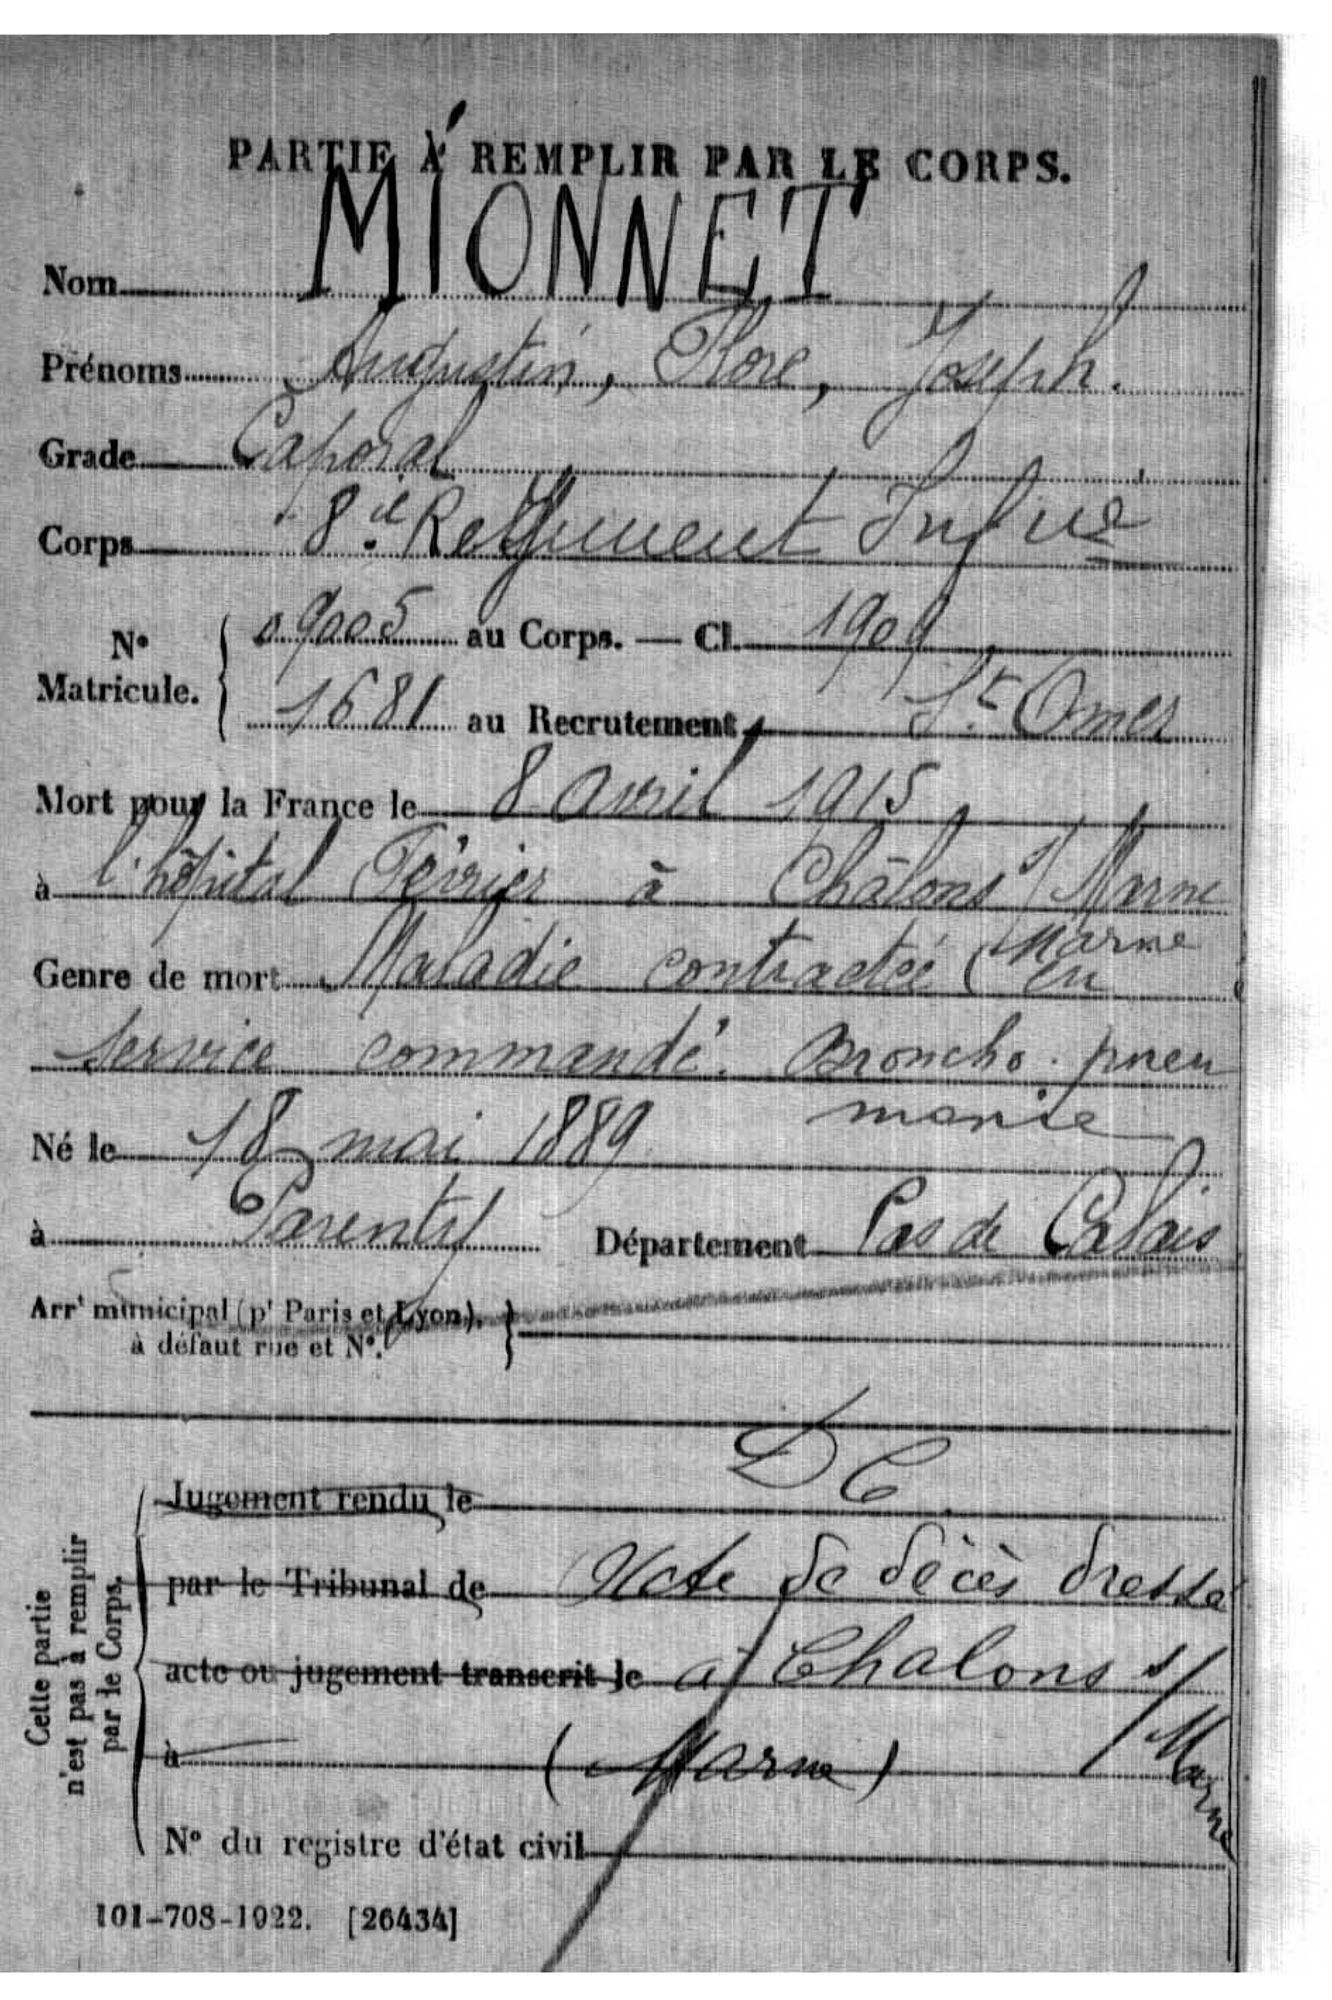 PARTIE À REMPLIR PAR LE CORPS.
Nom MIONNET
Prénoms Augustin, Flore, Joseph.
Grade Caporal
Corps 8e Régiment Infie
N° Matricule. 09005 au Corps. — Cl. 1909
1681 au Recrutement St Omer
Mort pour la France le 8 avril 1915
à l'hôpital Février à Châlons s/ Marne
(Marne
Genre de mort Maladie contractée en
service commandé. Broncho-pneu
monie
Né le 18 mai 1889
à Parenty Département Pas de Calais
Arrt municipal (pr Paris et Lyon),
à défaut rue et N°.
D C
Cette partie
n'est pas à remplir
par le Corps.
Jugement rendu le
par le Tribunal de Acte de décès dressé
acte ou jugement transcrit le à Chalons s/ Marne
à (Marne)
N° du registre d'état civil
101-708-1922. [26434]